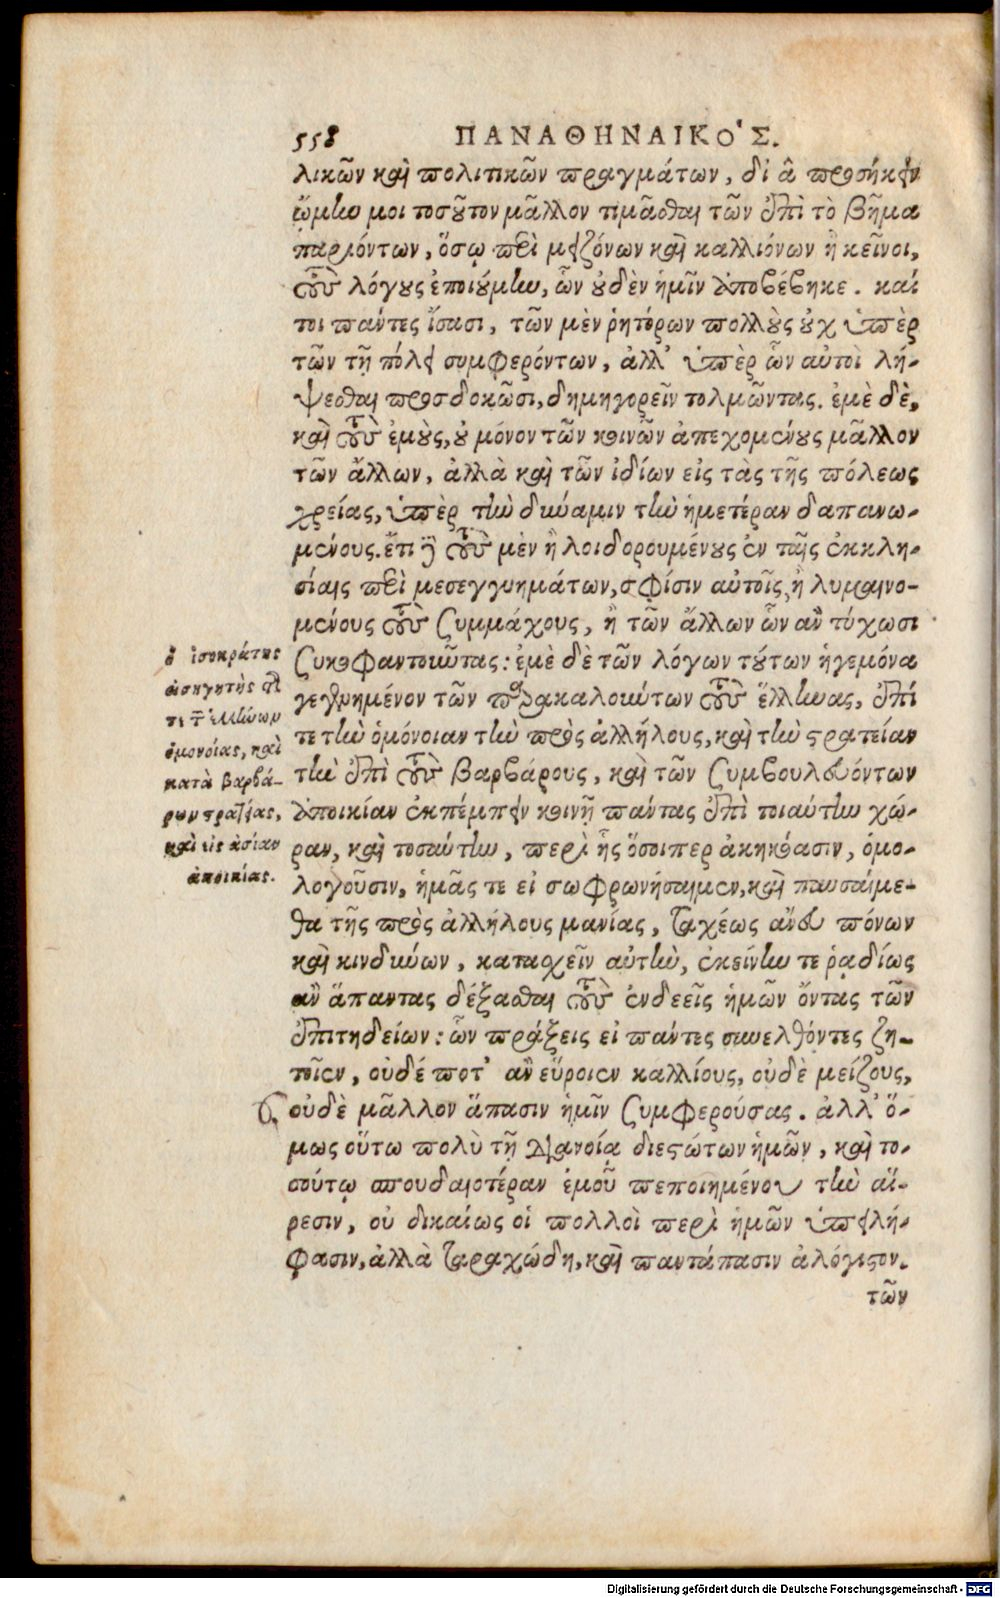 558 ΠΑΝΑΘΗΝΑΙΚΟ'Σ.
λικῶν καὶ πολιτικῶν πραγμάτων, δι' ἃ προσήκειν
ᾤμην μοι τοσοῦτον μᾶλλον τιμᾶσθαι τῶν ἐπὶ τὸ βῆμα
παριόντων, ὅσῳ περὶ μειζόνων καὶ καλλιόνων ἢ κεῖνοι,
τοὺς λόγους ἐποιούμην, ὧν οὐδὲν ἡμῖν ἀποβέβηκε. καί
τοι πάντες ἴσασι, τῶν μὲν ῥητόρων πολλοὺς οὐχ ὑπὲρ
τῶν τῇ πόλει συμφερόντων, ἀλλ' ὑπὲρ ὧν αὐτοὶ λή-
ψεσθαι προσδοκῶσι, δημηγορεῖν τολμῶντας. ἐμὲ δὲ,
καὶ τοὺς ἐμοὺς, οὐ μόνον τῶν κοινῶν ἀπεχομένους μᾶλλον
τῶν ἄλλων, ἀλλὰ καὶ τῶν ἰδίων εἰς τὰς τῆς πόλεως
χρείας, ὑπὲρ τὴν δύναμιν τὴν ἡμετέραν δαπανω-
μένους. ἔτι δὲ τοὺς μὲν ἢ λοιδορουμένους ἐν ταῖς ἐκκλη-
σίαις περὶ μεσεγγυημάτων, σφίσιν αὐτοῖς, ἢ λυμαινο-
μένους τοὺς συμμάχους, ἢ τῶν ἄλλων ὧν ἂν τύχωσι
συκοφαντοῦντας: ἐμὲ δὲ τῶν λόγων τούτων ἡγεμόνα
γεγενημένον τῶν παρακαλούντων τοὺς ἕλληνας, ἐπί
τε τὴν ὁμόνοιαν τὴν πρὸς ἀλλήλους, καὶ τὴν στρατείαν
τὴν ἐπὶ τοὺς βαρβάρους, καὶ τῶν συμβουλευόντων
ἀποικίαν ἐκπέμπειν κοινῇ πάντας ἐπὶ τοιαύτην χώ-
ραν, καὶ τοσαύτην, περὶ ἧς ὅσοιπερ ἀκηκόασιν, ὁμο-
λογοῦσιν, ἡμᾶς τε εἰ σωφρονήσαιμεν, καὶ παυσαίμε-
θα τῆς πρὸς ἀλλήλους μανίας, ταχέως ἄνευ πόνων
καὶ κινδύνων, κατασχεῖν αὐτὴν, ἐκείνην τε ῥαδίως
ἂν ἅπαντας δέξασθαι τοὺς ἐνδεεῖς ἡμῶν ὄντας τῶν
ἐπιτηδείων: ὧν πράξεις εἰ πάντες συνελθόντες ζη-
τοῖεν, οὐδέ ποτ' ἂν εὕροιεν καλλίους, οὐδὲ μείζους,
οὐδὲ μᾶλλον ἅπασιν ἡμῖν συμφερούσας. ἀλλ' ὅ-
μως οὕτω πολὺ τῇ διανοίᾳ διεστώτων ἡμῶν, καὶ το-
σούτῳ σπουδαιοτέραν ἐμοῦ πεποιημένου τὴν αἵ-
ρεσιν, οὐ δικαίως οἱ πολλοὶ περὶ ἡμῶν ὑπειλή-
φασιν, ἀλλὰ ταραχώδη, καὶ παντάπασιν ἀλόγιστον.
τῶν
ὁ ἰσοκράτης
εἰσηγητὴς
τῆς ἑλλήνων
ὁμονοίας, καὶ
κατὰ βαρβά-
ρων στρατείας,
καὶ εἰς ἀσίαν
ἀποικίας.
Digitalisierung gefördert durch die Deutsche Forschungsgemeinschaft - DFG